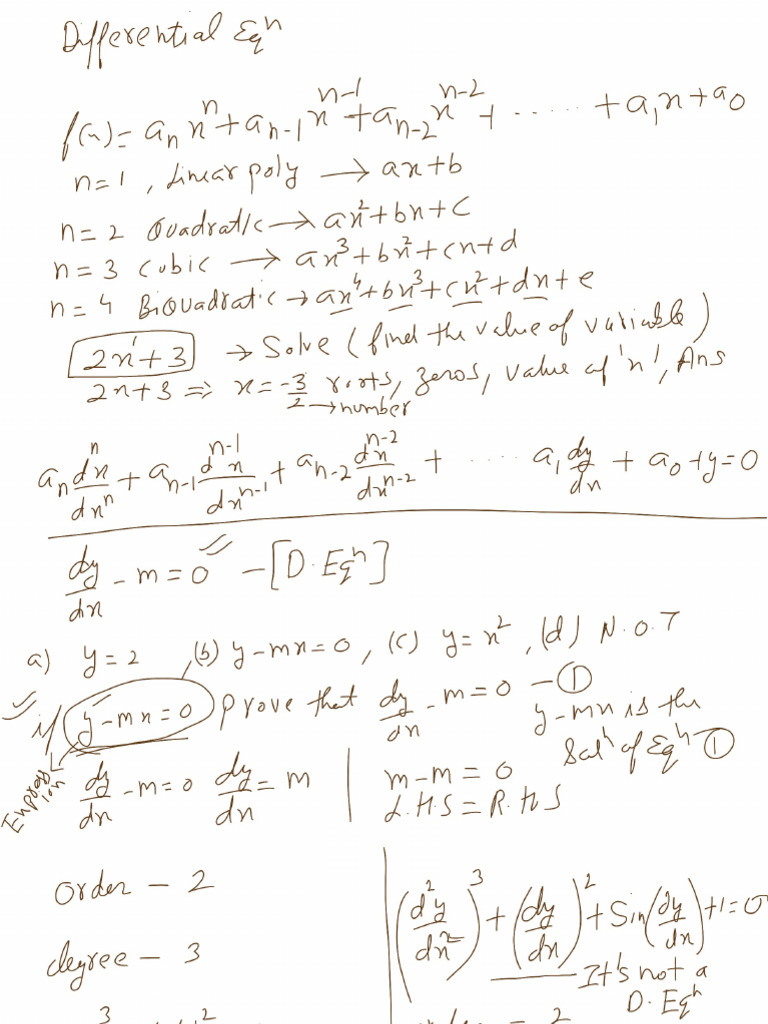 Differential Eqⁿ
f(x) = aₙxⁿ + aₙ₋₁xⁿ⁻¹ + aₙ₋₂xⁿ⁻² + ...... + a₁x + a₀
n = 1, Linear poly → ax + b
n = 2 Quadratic → ax² + bx + c
n = 3 Cubic → ax³ + bx² + cx + d
n = 4 BiQuadratic → ax⁴ + bx³ + cx² + dx + e
2x¹ + 3 → Solve (find the value of variable)
2x + 3 ⇒ x = -3/2 roots, zeros, value of 'x', Ans
→ number
aₙ dⁿx/dxⁿ + aₙ₋₁ dⁿ⁻¹x/dxⁿ⁻¹ + aₙ₋₂ dⁿ⁻²x/dxⁿ⁻² + ..... a₁ dy/dx + a₀ + y = 0
dy/dx - m = 0 - [D. Eqⁿ]
a) y = 2, (b) y - mx = 0, (c) y = x², (d) N.O.T
if y - mx = 0 prove that dy/dx - m = 0 - ①
y - mx is the
Solⁿ of Eqⁿ ①
Expression
dy/dx - m = 0 dy/dx = m
m - m = 0
L.H.S = R.H.S
Order - 2
degree - 3
(d²y/dx²)³ + (dy/dx)² + Sin(dy/dx) + 1 = 0
It's not a
D. Eqⁿ